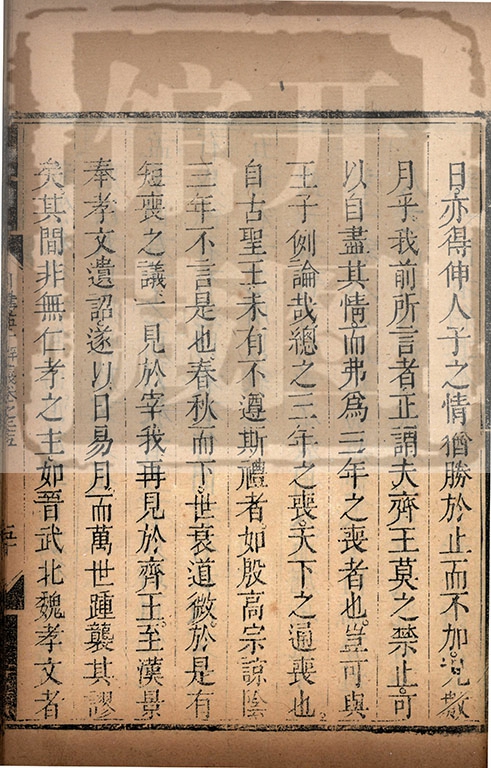 日亦得伸人子之情猶勝於止而不加況數
月乎我前所言者正謂夫齊王莫之禁止可
以自盡其情而弗為三年之喪者也豈可與
王子例論哉總之三年之喪天下之通喪也
自古聖王未有不遵斯禮者如殷高宗諒陰
三年不言是也春秋而下世衰道微於是有
短喪之議一見於宰我再見於齊王至漢景
奉孝文遺詔遂以日易月而萬世踵襲其謬
矣其間非無仁孝之主如晉武北魏孝文者